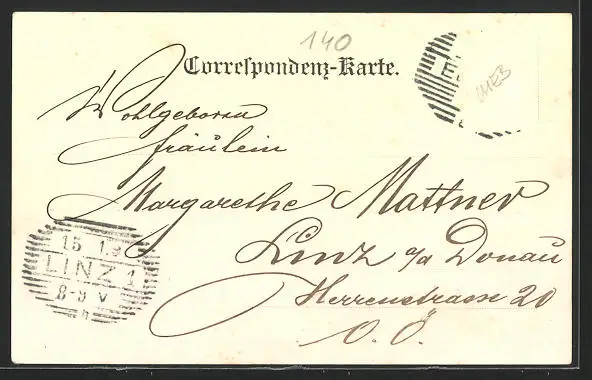 140
Correspondenz-Karte.
Wohlgeboren
Fräulein
Margarethe Mattner
Linz a/a Donau
Herrenstrasse 20
O. Ö.
LINZ 1
8-9 V